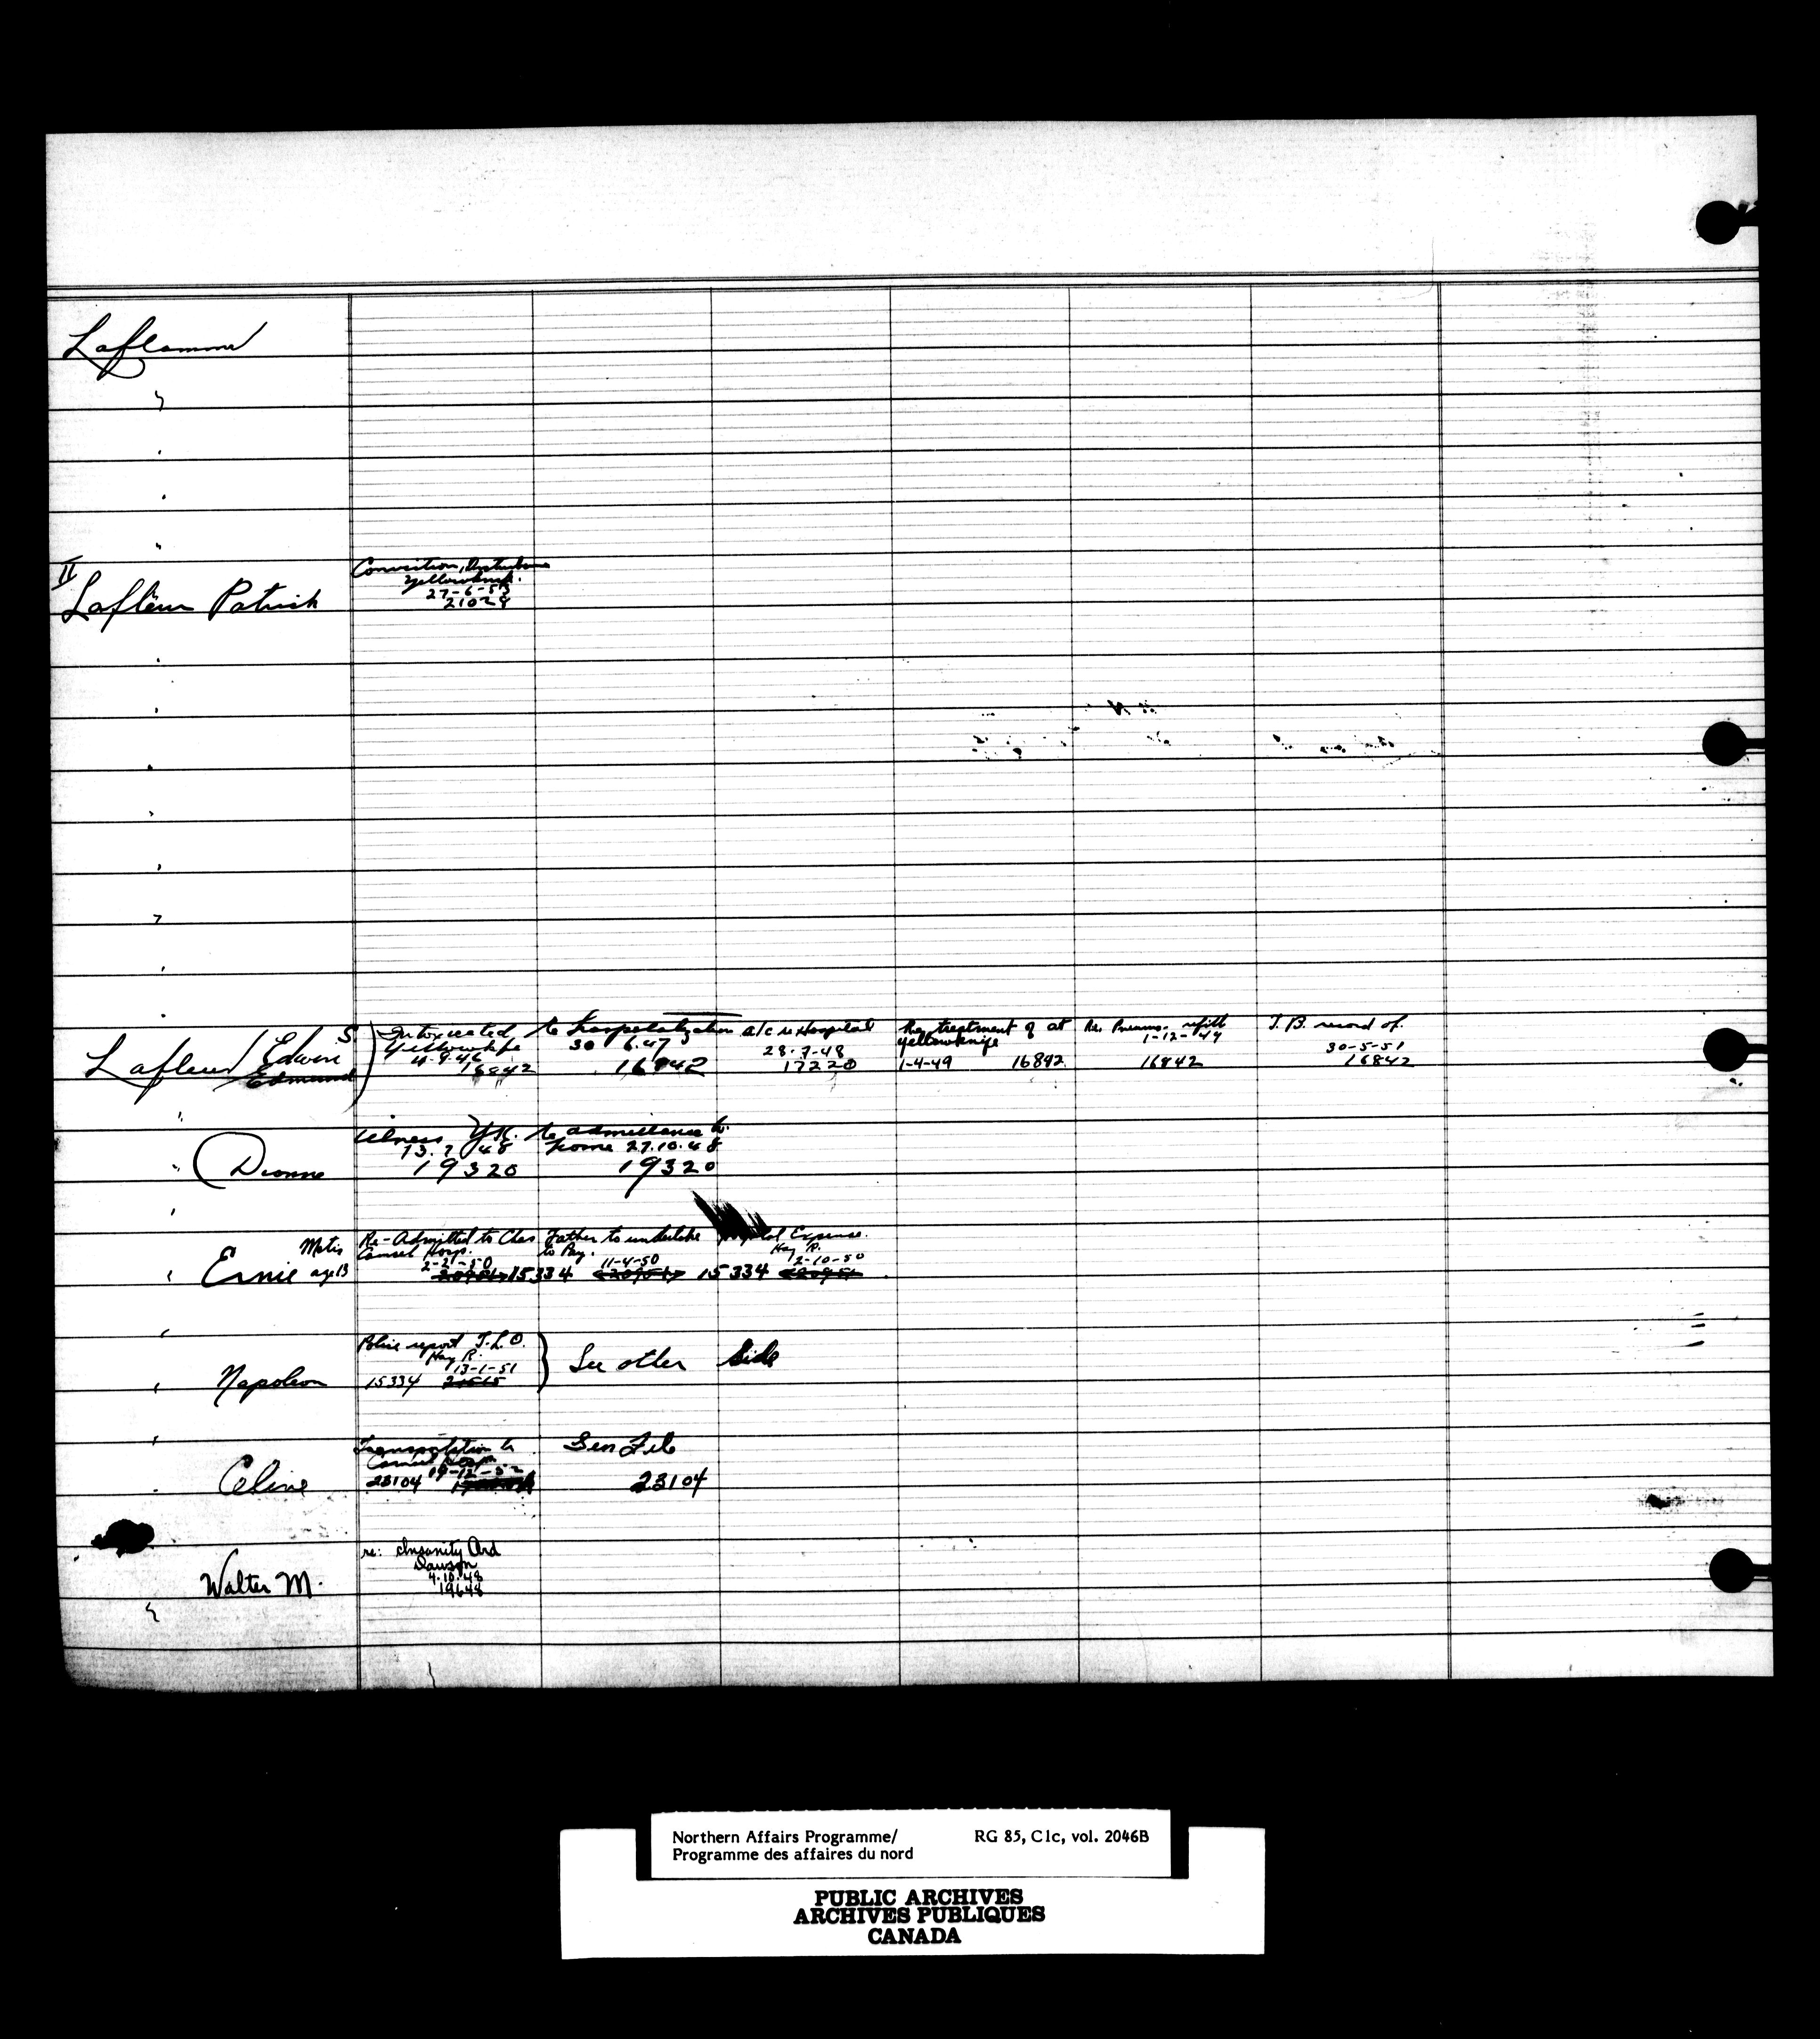 Laflamme
II
Lafleur Patrick
Conviction, Disturbance
Yellowknife.
27-6-53
21028
Lafleur Edwin S.
Edmund
Intoxicated
Yellowknife
16842
to hospitalization
30 6.47
16842
a/c re Hospital
28-7-48
17220
Re treatment of at
Yellowknife
1-4-49 16842
Re. Pneumo- refill
1-12-49
16842
T.B. record of.
30-5-51
16842
Dionne
illness YK.
13.7.48
19320
to admittance to
home 27.10.48
19320
Metis
Ernie age 13
Re-Admitted to Chas
Camsell Hosp.
2-21-50
15334
Father to undertake
to Pay.
11-4-50
15334
Hospital Expense.
Hay R.
2-10-50
Napoleon
Police report T.L.O.
Hay R.
13-1-51
15334
See other side
Celine
Transportation to
Camsell Hosp.
19-12-52
23104
Gen File
23104
Walter M.
re: Insanity Ord
Dawson
4.10.48
19648
Northern Affairs Programme/ RG 85, C1c, vol. 2046B
Programme des affaires du nord
PUBLIC ARCHIVES
ARCHIVES PUBLIQUES
CANADA